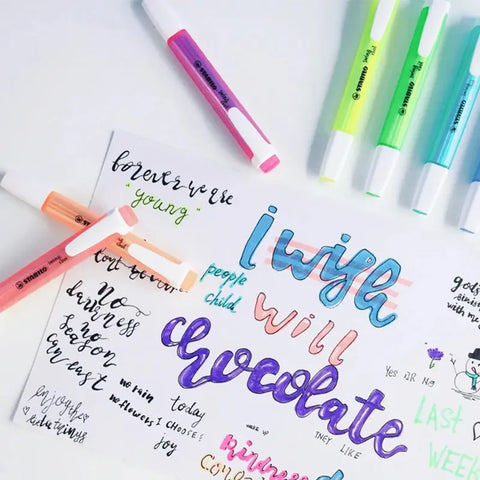 STABILO
swing cool
STABILO
STABILO
STABILO
STABILO
forever we are
"young"
i wish
people
child
will
chocolate
no
darkness
no
season
can last
enjoy the
little things
no rain
no flowers
today
I CHOOSE
joy
WAKE UP
THEY LIKE
kindness
gods
with me
Yes OR No
LAST
WEEK